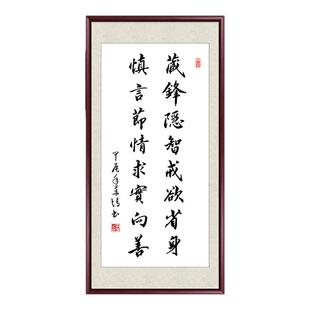 藏鋒隱智戒欲省身
慎言節情求實向善
甲辰年